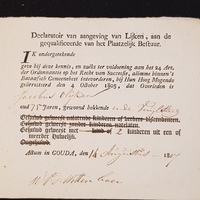 Declaratoir van aangeving van Lijken, aan de
gequalificeerde van het Plaatzelijk Bestuur.
Ik ondergetekende
geve bij deze kennis, en zulks ter voldoening aan het 24 Art.
der Ordonnantie op het Recht van Successie, alomme binnen 't
Bataafsch Gemeenebest ingevoerd, bij Hun Hoog Mogende
gearresteerd den 4 October 1805, dat Overleden is
oud 75 Jaren, gewoond hebbende in de
Gehuwd geweest nalatende kinderen of verdere descendenten.
Gehuwd geweest zonder kinderen natelaten.
Gehuwd geweest met kind of 2 kinderen uit een of
meerder Huwelijk.
Ongehuwd.
Actum in GOUDA, den 14 Augustus